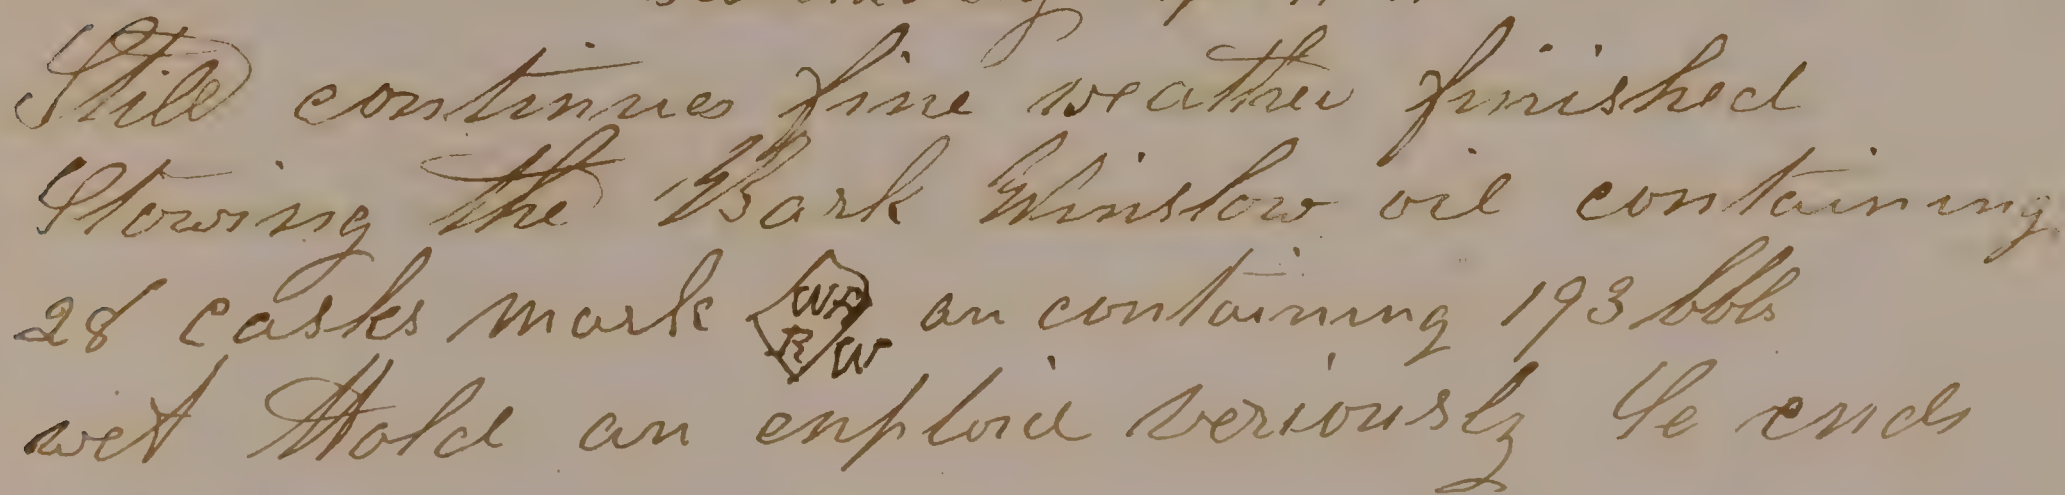 Still continues fine weather finished
Stowing the Bark Winslow oil containing
28 casks mark WR B W an containing 193 bbls
wet Hold an enploid veriously So ends